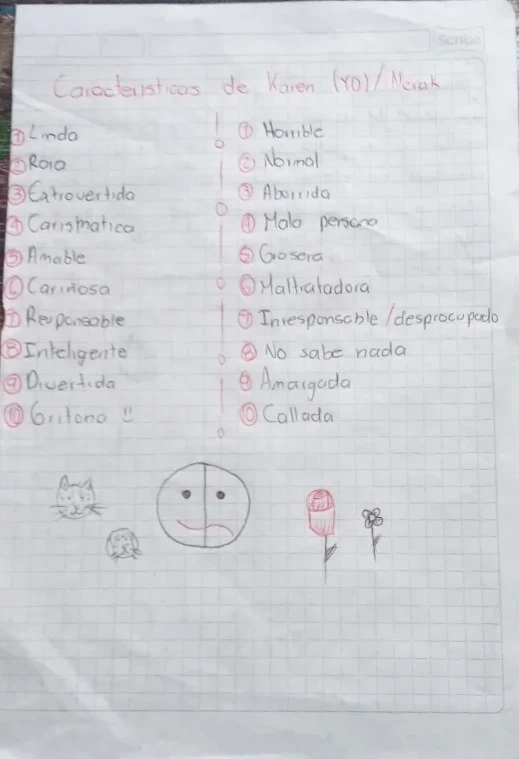 Scribe
Caracteristicas de Karen (YO) / Nerak
① Linda
② Rara
③ Extrovertida
④ Carismatica
⑤ Amable
⑥ Cariñosa
⑦ Responsable
⑧ Inteligente
⑨ Divertida
⑩ Gritona !!
① Horrible
② Normal
③ Aburrida
④ Mala persona
⑤ Grosera
⑥ Maltratadora
⑦ Irresponsable / desprocupado
⑧ No sabe nada
⑨ Amargada
⑩ Callada